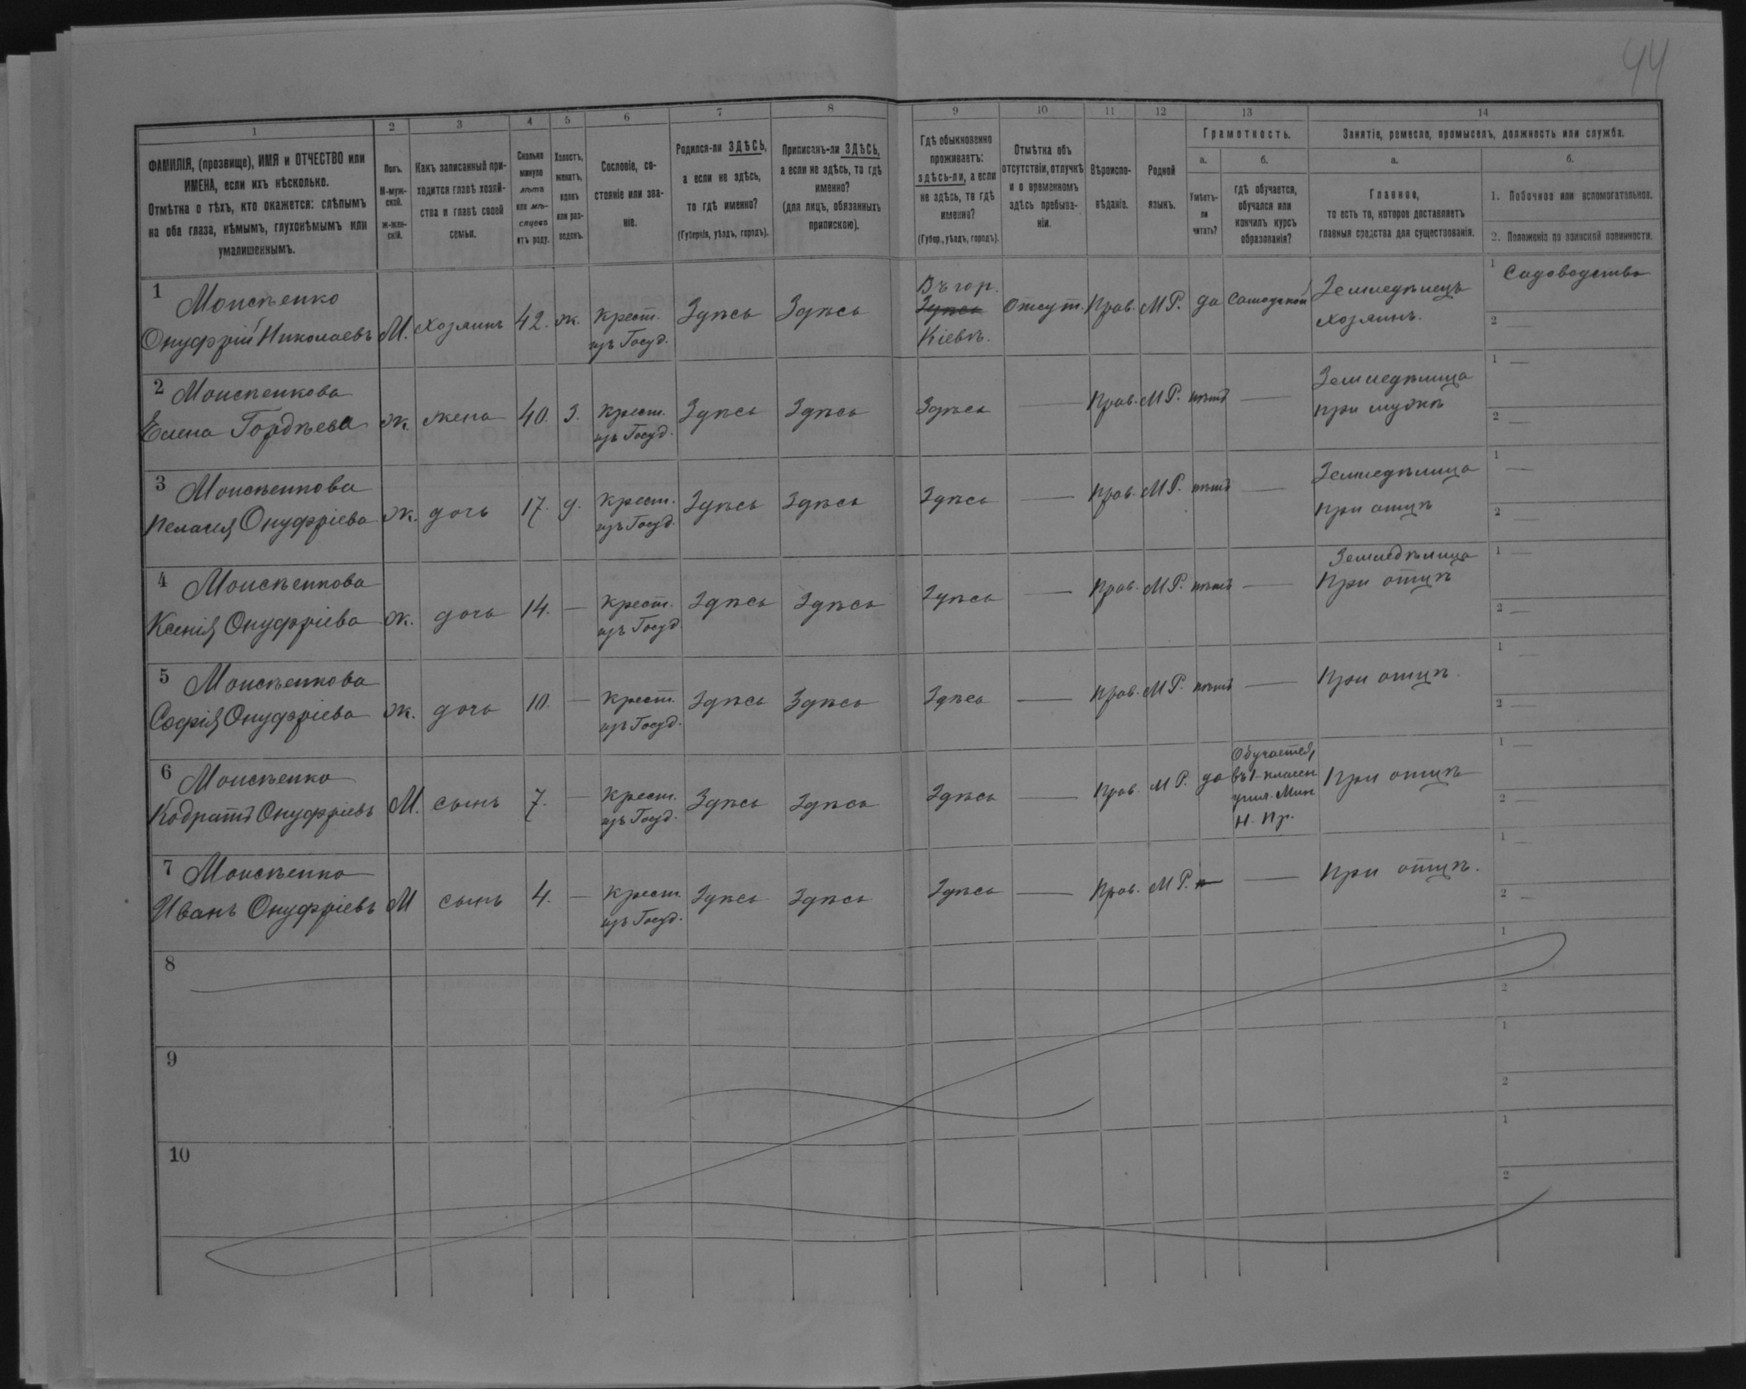 44
1 2 3 4 5 6 7 8 9 10 11 12 13 14
ФАМИЛІЯ, (прозвище), ИМЯ и ОТЧЕСТВО или
ИМЕНА, если ихъ нѣсколько.
Отмѣтка о тѣхъ, кто окажется: слѣпымъ
на оба глаза, нѣмымъ, глухонѣмымъ или
умалишеннымъ.
Полъ.
М-муж-
ской.
Ж-жен-
скій.
Какъ записанный при-
ходится главѣ хозяй-
ства и главѣ своей
семьи.
Сколько
минуло
лѣтъ
или мѣ-
сяцевъ
отъ роду.
Холостъ,
женатъ,
вдовъ
или раз-
веденъ.
Сословіе, со-
стояніе или зва-
ніе.
Родился-ли ЗДѢСЬ,
а если не здѣсь,
то гдѣ именно?
(Губернія, уѣздъ, городъ).
Приписанъ-ли ЗДѢСЬ,
а если не здѣсь, то гдѣ
именно?
(для лицъ, обязанныхъ
припискою).
Гдѣ обыкновенно
проживаетъ:
здѣсь-ли, а если
не здѣсь, то гдѣ
именно?
(Губер., уѣздъ, городъ).
Отмѣтка объ
отсутствіи, отлучкѣ
и о временномъ
здѣсь пребыва-
ніи.
Вѣроиспо-
вѣданіе.
Родной
языкъ.
Грамотность.
а.
Умѣетъ-
ли
читать?
б.
гдѣ обучается,
обучался или
кончилъ курсъ
образованія?
Занятіе, ремесло, промыселъ, должность или служба.
а.
Главное,
то есть то, которое доставляетъ
главныя средства для существованія.
б.
1. Побочное или вспомогательное.
2. Положеніе по воинской повинности.
1 Моисѣенко
Онуфрій Николаевъ М. хозяинъ 42. ж. Крест. изъ Госуд. Здѣсь Здѣсь Въ гор. Здѣсь Кіевѣ. Отсут. Прав. М.Р. да Самоучкой Земледѣлецъ хозяинъ. 1 Садоводство 2 —
2 Моисѣенкова
Елена Гордѣева ж. жена 40. З. Крест. изъ Госуд. Здѣсь Здѣсь Здѣсь — Прав. М.Р. нѣтъ — Земледѣлица при мужѣ 1 — 2 —
3 Моисѣенкова
Пелагея Онуфріева ж. дочь 17. д. Крест. изъ Госуд. Здѣсь Здѣсь Здѣсь — Прав. М.Р. нѣтъ — Земледѣлица при отцѣ 1 — 2 —
4 Моисѣенкова
Ксенія Онуфріева ж. дочь 14. — Крест. изъ Госуд. Здѣсь Здѣсь Здѣсь — Прав. М.Р. нѣтъ — Земледѣлица При отцѣ 1 — 2 —
5 Моисѣенкова
Софія Онуфріева ж. дочь 10. — Крест. изъ Госуд. Здѣсь Здѣсь Здѣсь — Прав. М.Р. нѣтъ — При отцѣ. 1 — 2 —
6 Моисѣенко
Кодратъ Онуфріевъ М. сынъ 7. — Крест. изъ Госуд. Здѣсь Здѣсь Здѣсь — Прав. М.Р. да Обучается въ 1 классн учил. Мин Н. Пр. При отцѣ 1 — 2 —
7 Моисѣенко
Иванъ Онуфріевъ М сынъ 4. — Крест. изъ Госуд. Здѣсь Здѣсь Здѣсь — Прав. М.Р. — При отцѣ. 1 — 2 —
8 1 2
9 1 2
10 1 2